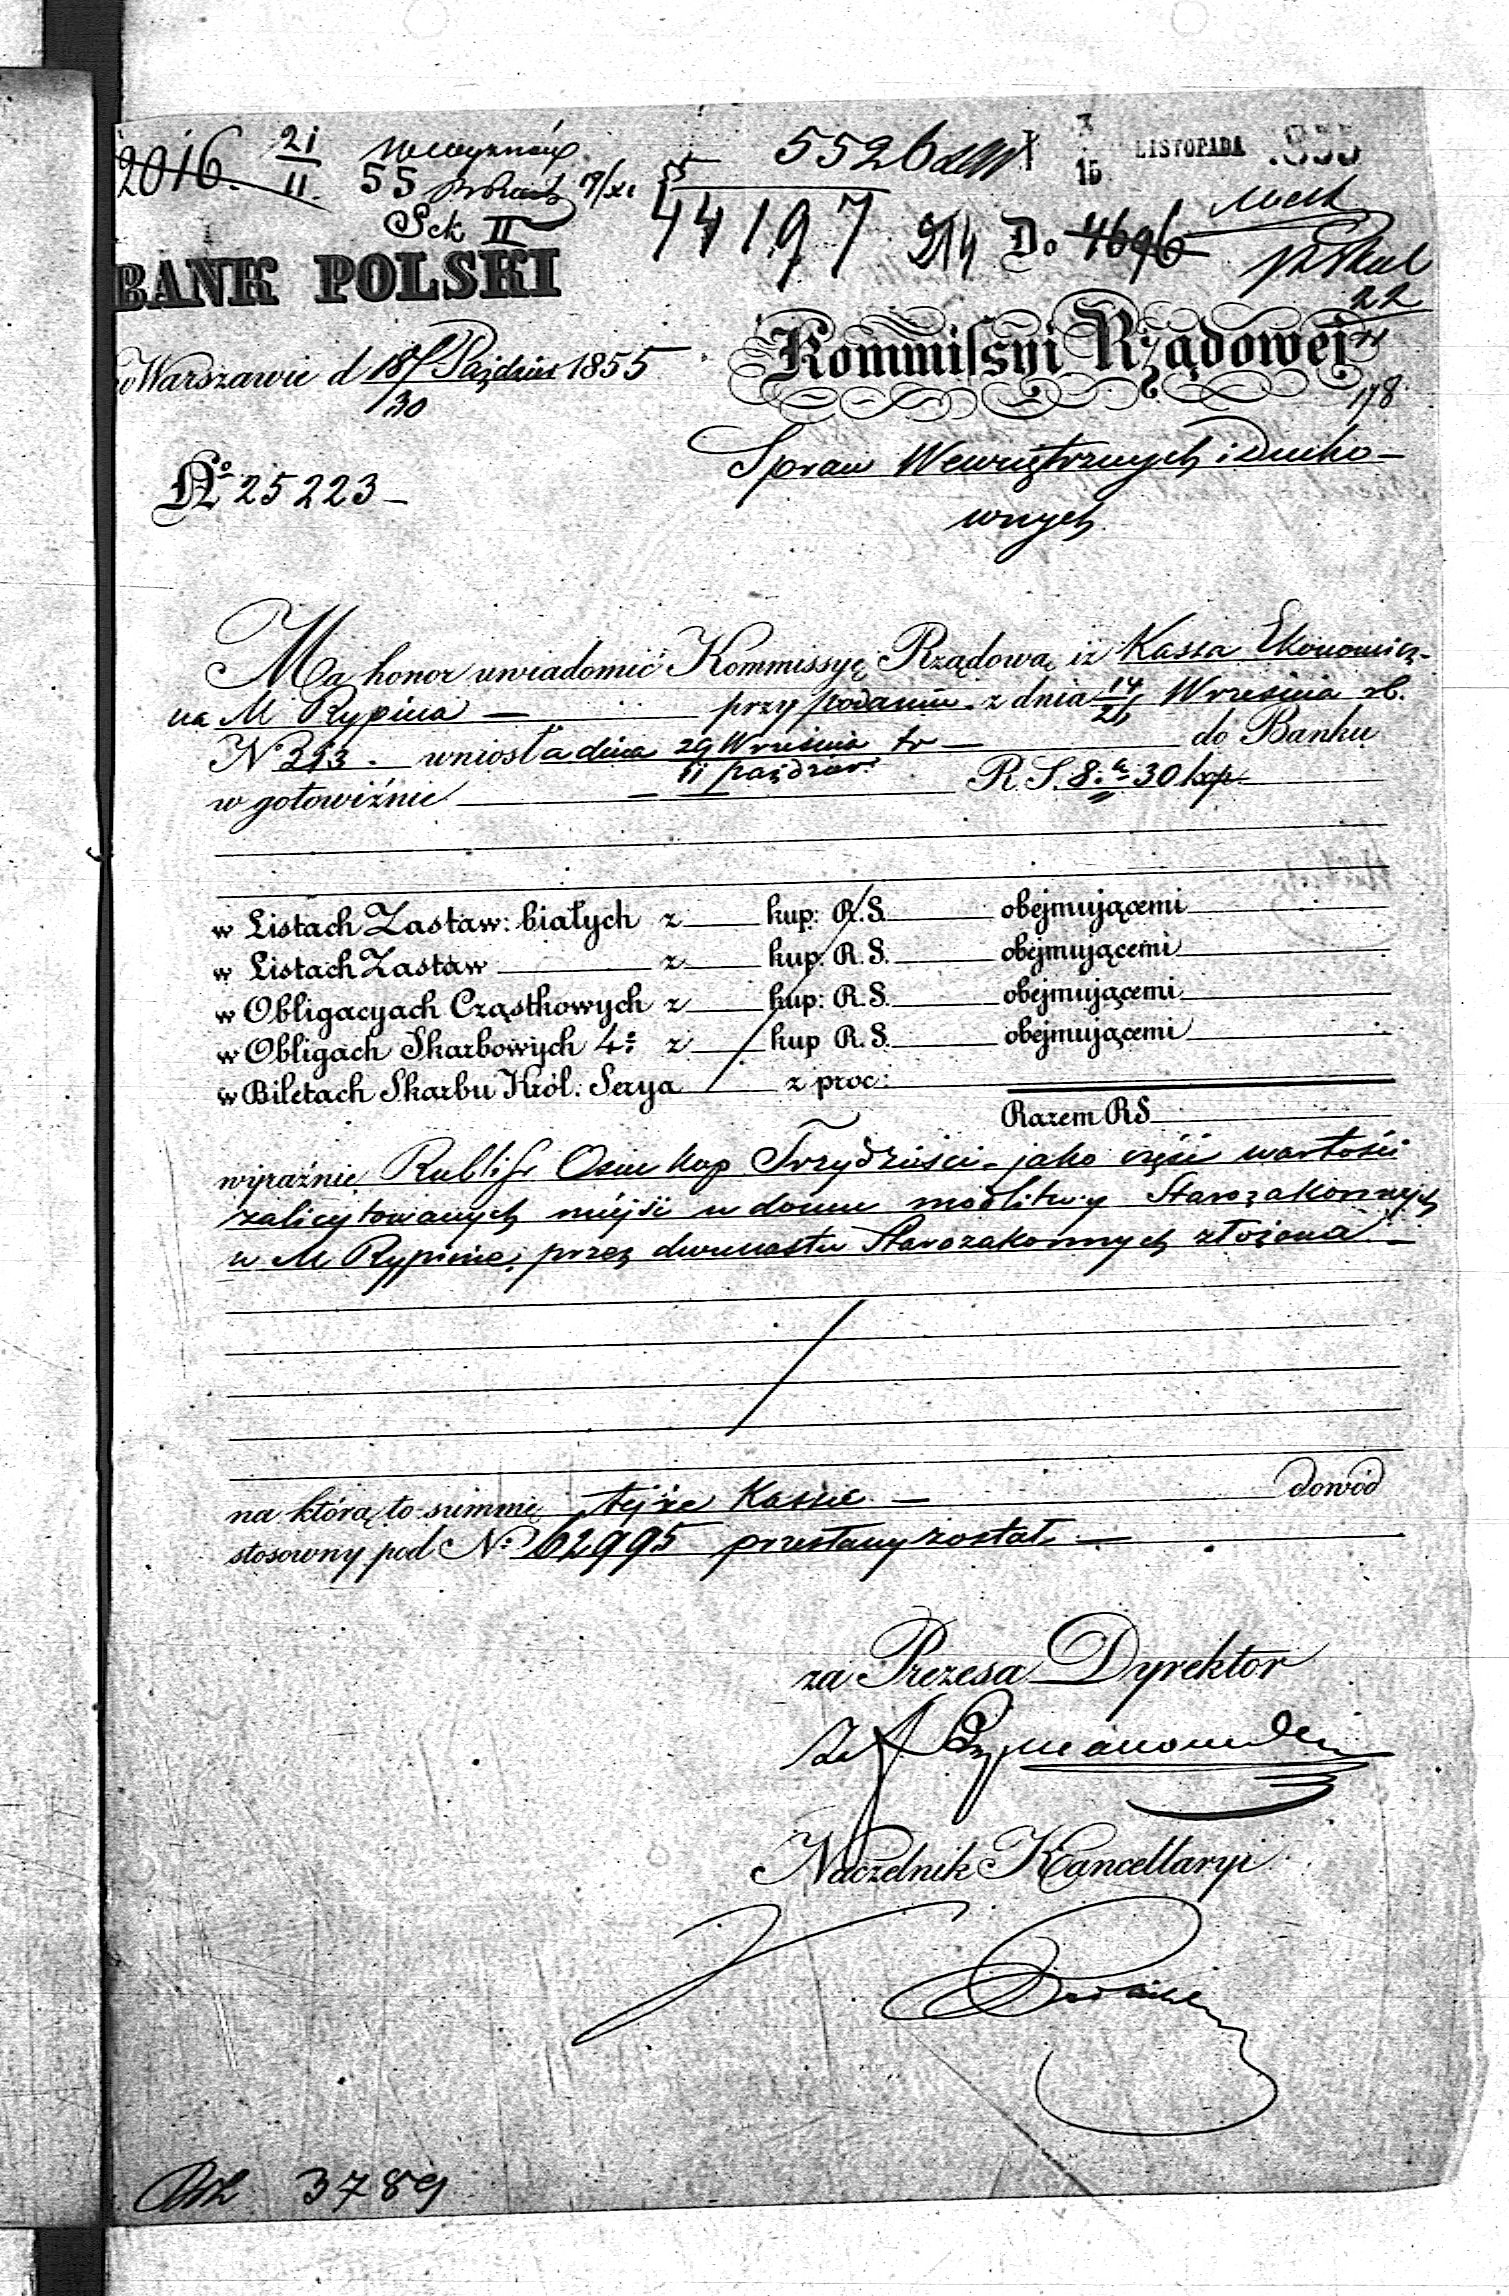 2016. 21/II. 55
Sek II
5526
3/15 LISTOPADA 1855
44197 214 Do 4696
22
BANK POLSKI
Kommissyi Rządowej
178
w Warszawie d 18/30 Paździer 1855
Spraw Wewnętrznych i Ducho-
wnych
No 25223
Ma honor uwiadomić Kommissyę Rządową iż Kassa Ekonomicz-
na M Rypina — przy podaniu z dnia 14/26 Września rb.
No 313. wniosła dnia 29 Września/11 Paździor: tr — do Banku
w gotowiźnie — R.S. 8 k. 30 kop
w Listach Zastaw: białych z kup: R.S. obejmującemi
w Listach Zastaw z kup: R.S. obejmującemi
w Obligacyach Cząstkowych z kup: R.S. obejmującemi
w Obligach Skarbowych 4: z kup R.S. obejmującemi
w Biletach Skarbu Król: Serya z proc:
Razem RS
wyraźnie Rubli sr Osiem kop Trzydzieści - jako część wartości
zalicytowanych miejsc w domu modlitwy Starozakonnych
w M Rypinie, przez dwunastu Starozakonnych złożona —
na którą to summę tejże Kassie — dowód
stosowny pod No 62995 przesłany został. —
za Prezesa Dyrektor
Naczelnik Kancellaryi
3789